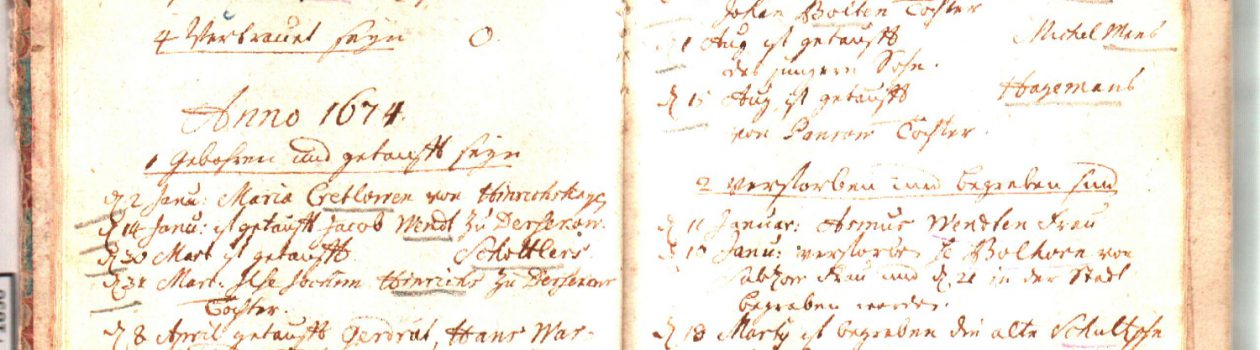 4 Vertrauet seyn 0.
Anno 1674.
1 Gebohren und getaufft seyn
d 2 Janu: Maria Cretlowen von Hinrichshagen
d 14 Janu: ist getaufft Jacob Wendt zu Dersekow.
d 30 Mart ist getaufft Scholtlers
d 31 Mart: Ilse Jochim Hinrichs zu Dersekow
Tochter.
d 8 April getaufft Gerdrut, Hans War-
Johan Bolten Tochter
d 1 Aug ist getaufft Michel Mans
des jungern Sohn.
d 15 Aug ist getaufft Hagemans
von Tochter.
2 Verstorben und begraben sind
d 11 Januar: Asmus Wendten Frau
d 18 Janu: verstorben H Bolhorn von
Frau und d 21 in der Stadt
begraben worden.
d 18 Marty ist begraben die alte